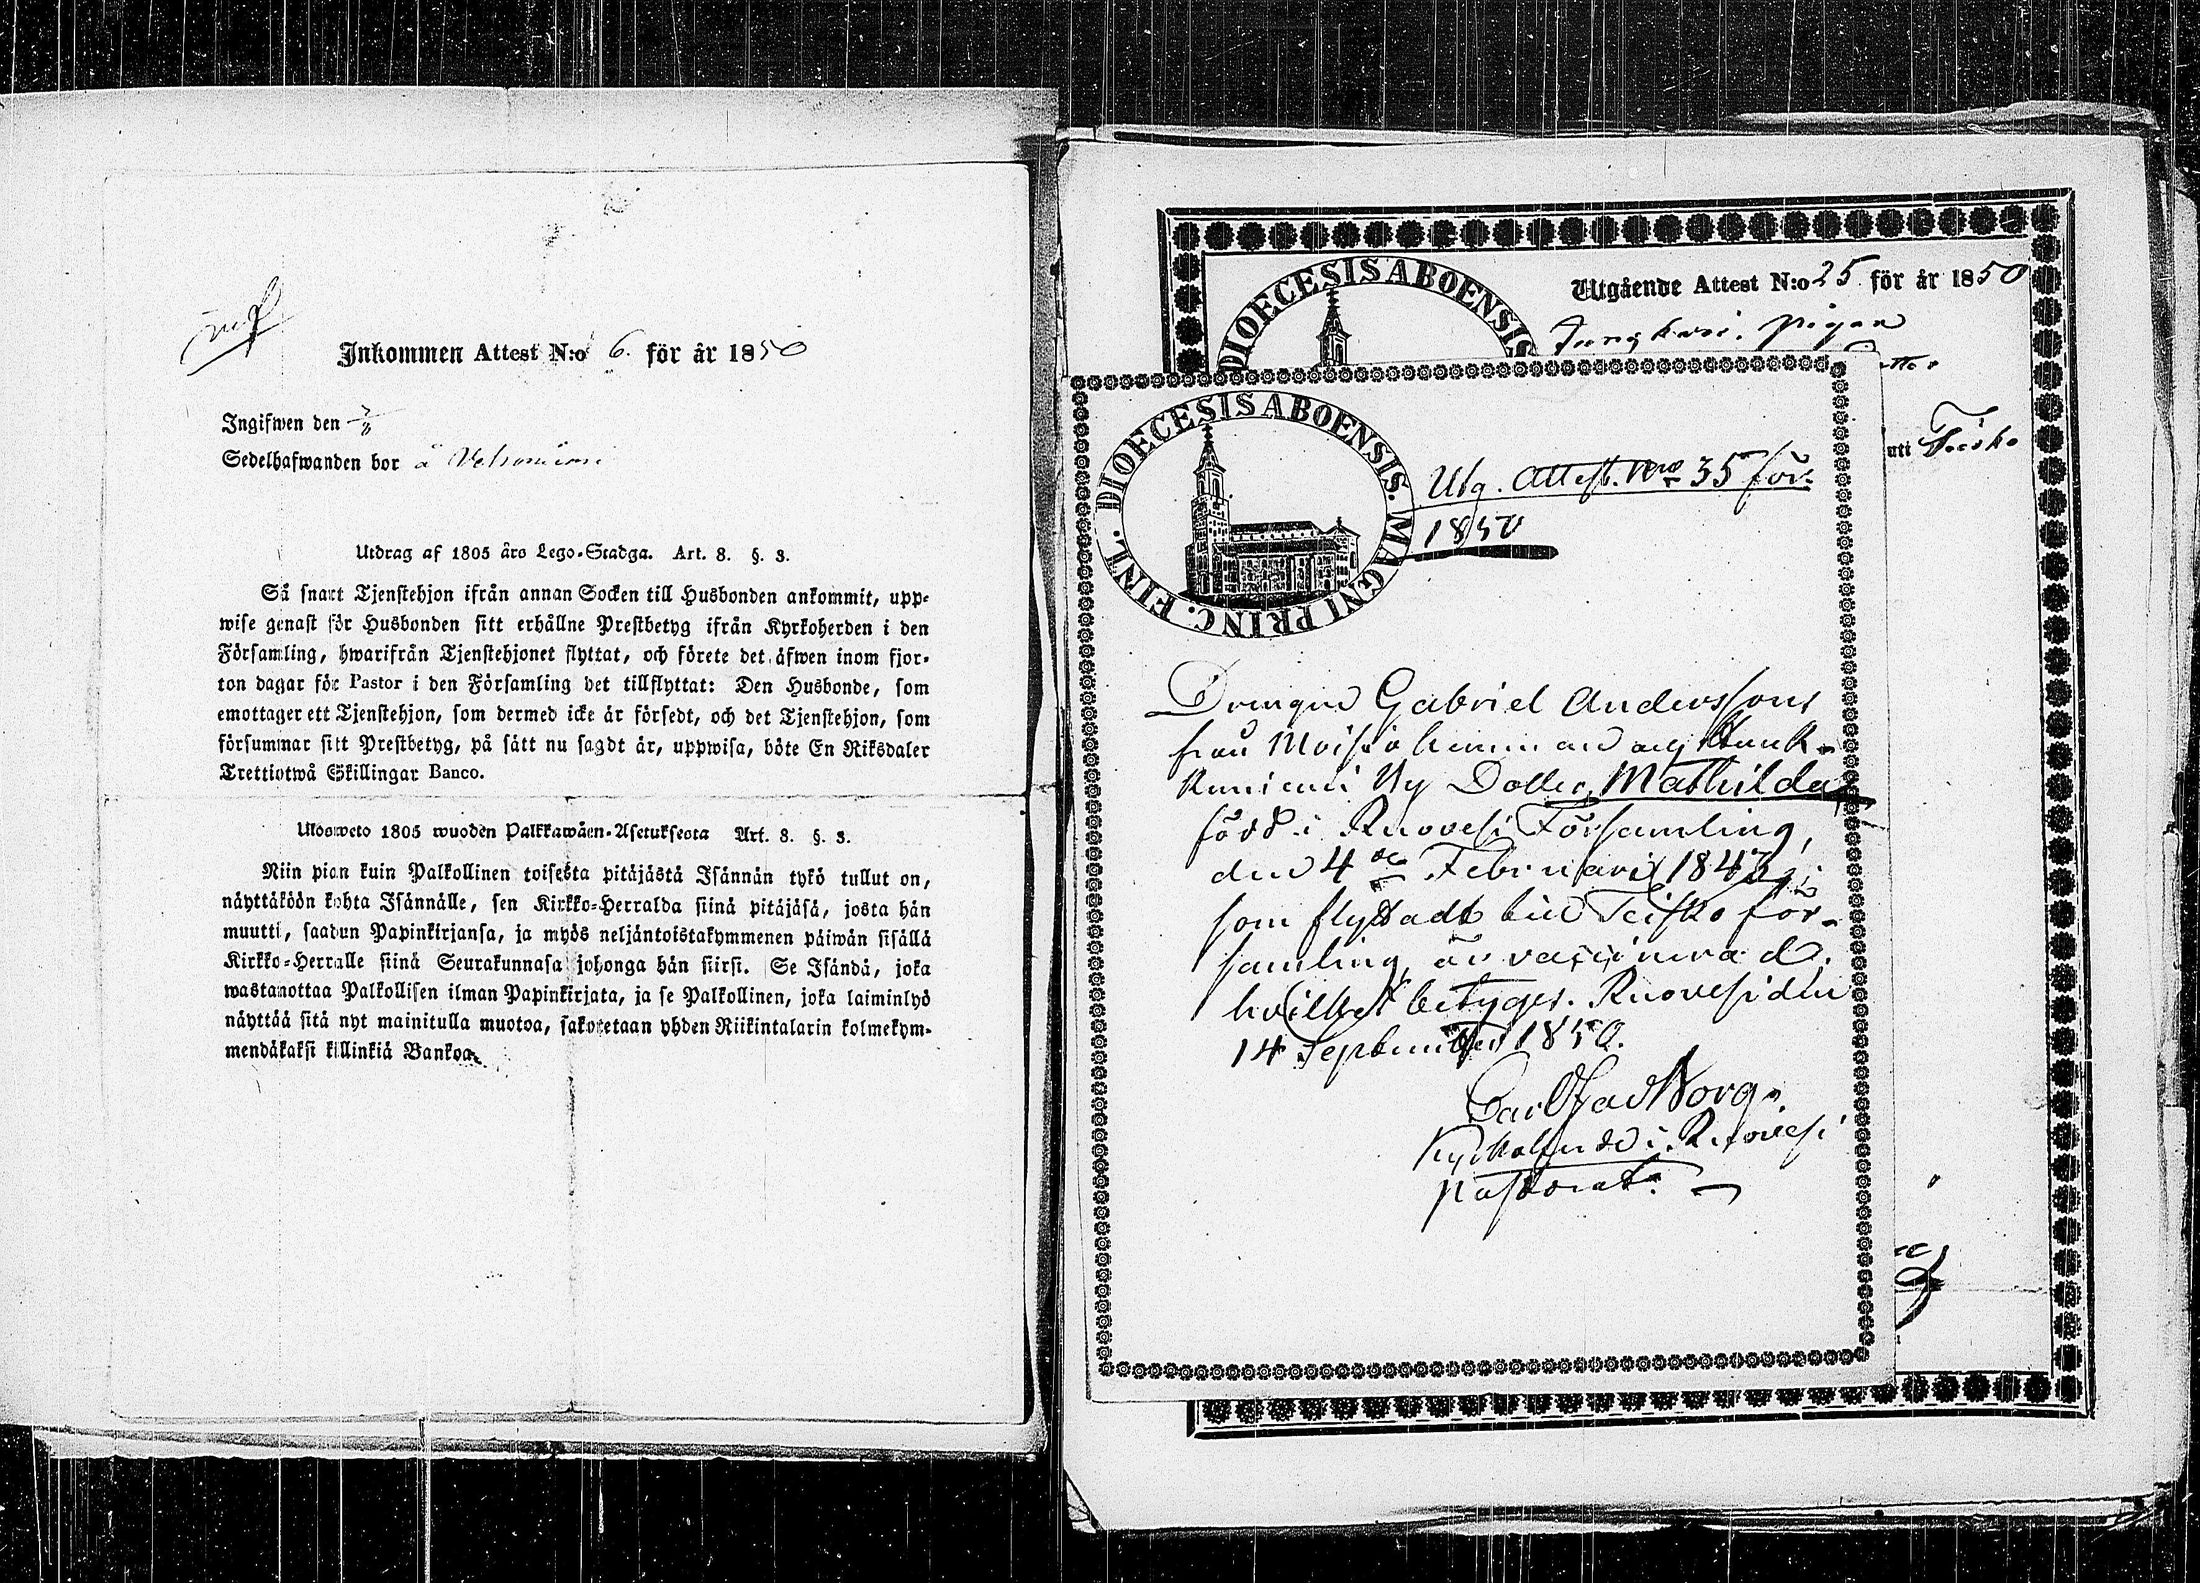 Inkommen Attest N:o 6. för år 1850
Ingifwen den
Sedelhafwanden bor å
Utdrag af 1805 års Lego-Stadga. Art. 8. §. 3.
Så snart Tjenstehjon ifrån annan Socken till Husbonden ankommit, upp-
wise genast för Husbonden sitt erhållne Prestbetyg ifrån Kyrkoherden i den
Församling, hwarifrån Tjenstehjonet flyttat, och förete det äfwen inom fjor-
ton dagar för Pastor i den Församling det tillflyttat: Den Husbonde, som
emottager ett Tjenstehjon, som dermed icke är försedt, och det Tjenstehjon, som
försummar sitt Prestbetyg, på sätt nu sagdt är, uppwisa, böte En Riksdaler
Trettiotwå Skillingar Banco.
Ulosweto 1805 wuoden Palkkawäen-Asetuksesta Art. 8. §. 3.
Niin pian kuin Palkollinen toisesta pitäjästä Isännän tykö tullut on,
näyttäköön kohta Isännälle, sen Kirkko-Herralda siinä pitäjäsä, josta hän
muutti, saadun Papinkirjansa, ja myös neljäntoistakymmenen päiwän sisällä
Kirkko-Herralle siinä Seurakunnasa johonga hän siirsi. Se Isändä, joka
wastanottaa Palkollisen ilman Papinkirjata, ja se Palkollinen, joka laiminlyö
näyttää sitä nyt mainitulla muotoa, sakotetaan yhden Riikintalarin kolmekym-
mendäkaksi killinkiä Bankoa.
DIOECESIS ABOENSIS
Utgående Attest N:o 25 för år 1850
pigan
Teisko
DIOECESIS ABOENSIS. MAGNI PRINC. FINL.
Utg. Attest. Nro 35 för
1850
Drängen Gabriel Anderssons
från
Dotter, Mathilda
född i Ruovesi Församling,
den 4de Februarii 1843,
som flyttadt till Teisko för-
samling, är vaccinerad,
hvilket betyges. Ruovesi den
14 September 1850.
Kyrkoherde i Ruovesi
pastorat.